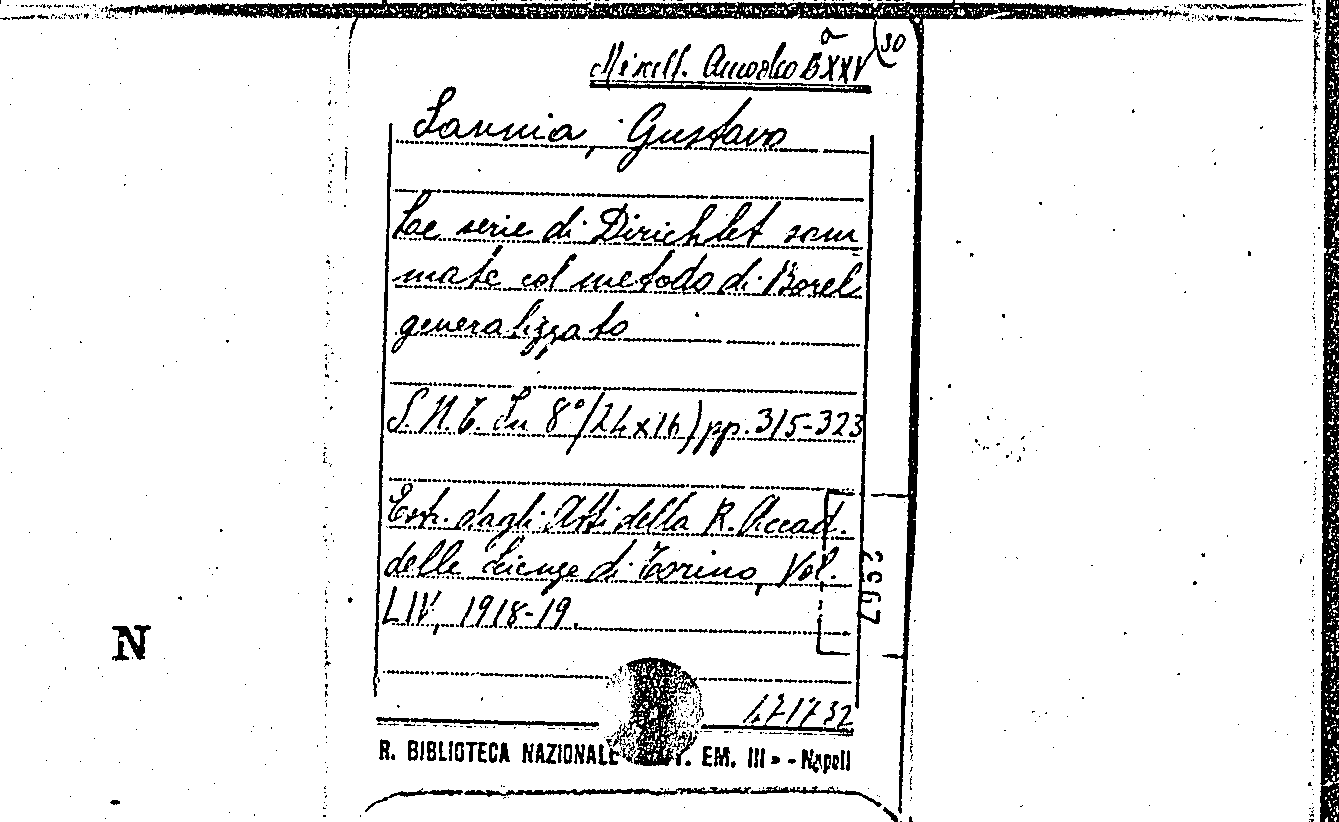 Miscell. Amodeo B XXV a (30
Sannia, Gustavo
Le serie di Dirichlet som
mate col metodo di Borel
generalizzato
S.N.T. In 8° (24x16) pp. 315-323
Estr. dagli Atti della R. Accad.
delle Scienze di Torino, Vol.
LIV, 1918-19.
471732
R. BIBLIOTECA NAZIONALE EM. III - Napoli
N